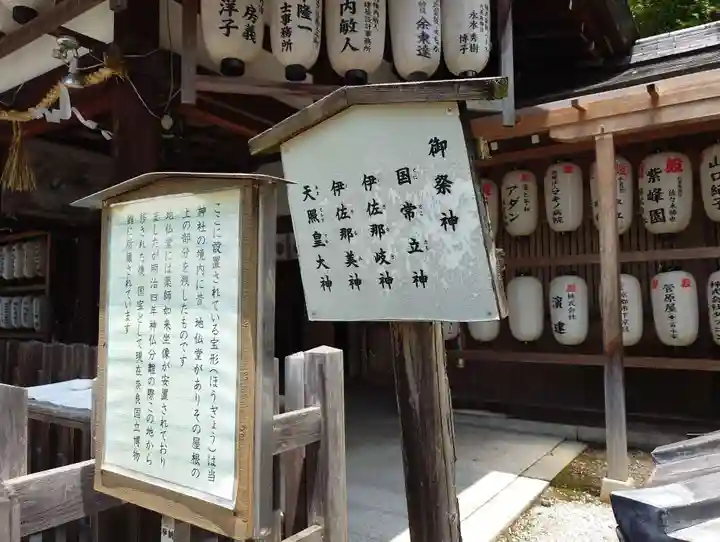 御祭神
国常立神
伊佐那岐神
伊佐那美神
天照皇大神
ここに設置されている宝形(ほうぎょう)は当
神社の境内に昔、地仏堂がありその屋根の
上の部分を残したものです
地仏堂には薬師如来坐像が安置されており
ましたが明治四年神仏分離の際この地から
移された後、国宝として現在奈良国立博物
館に所蔵されています
洋子
房義
隆一
士事務所
内敏人
建築設計事務所
余東達
永水秀樹
博子
アダン
マキノ病院
紫峰園
山口
株式会社
濱達
菅原屋
株式会社